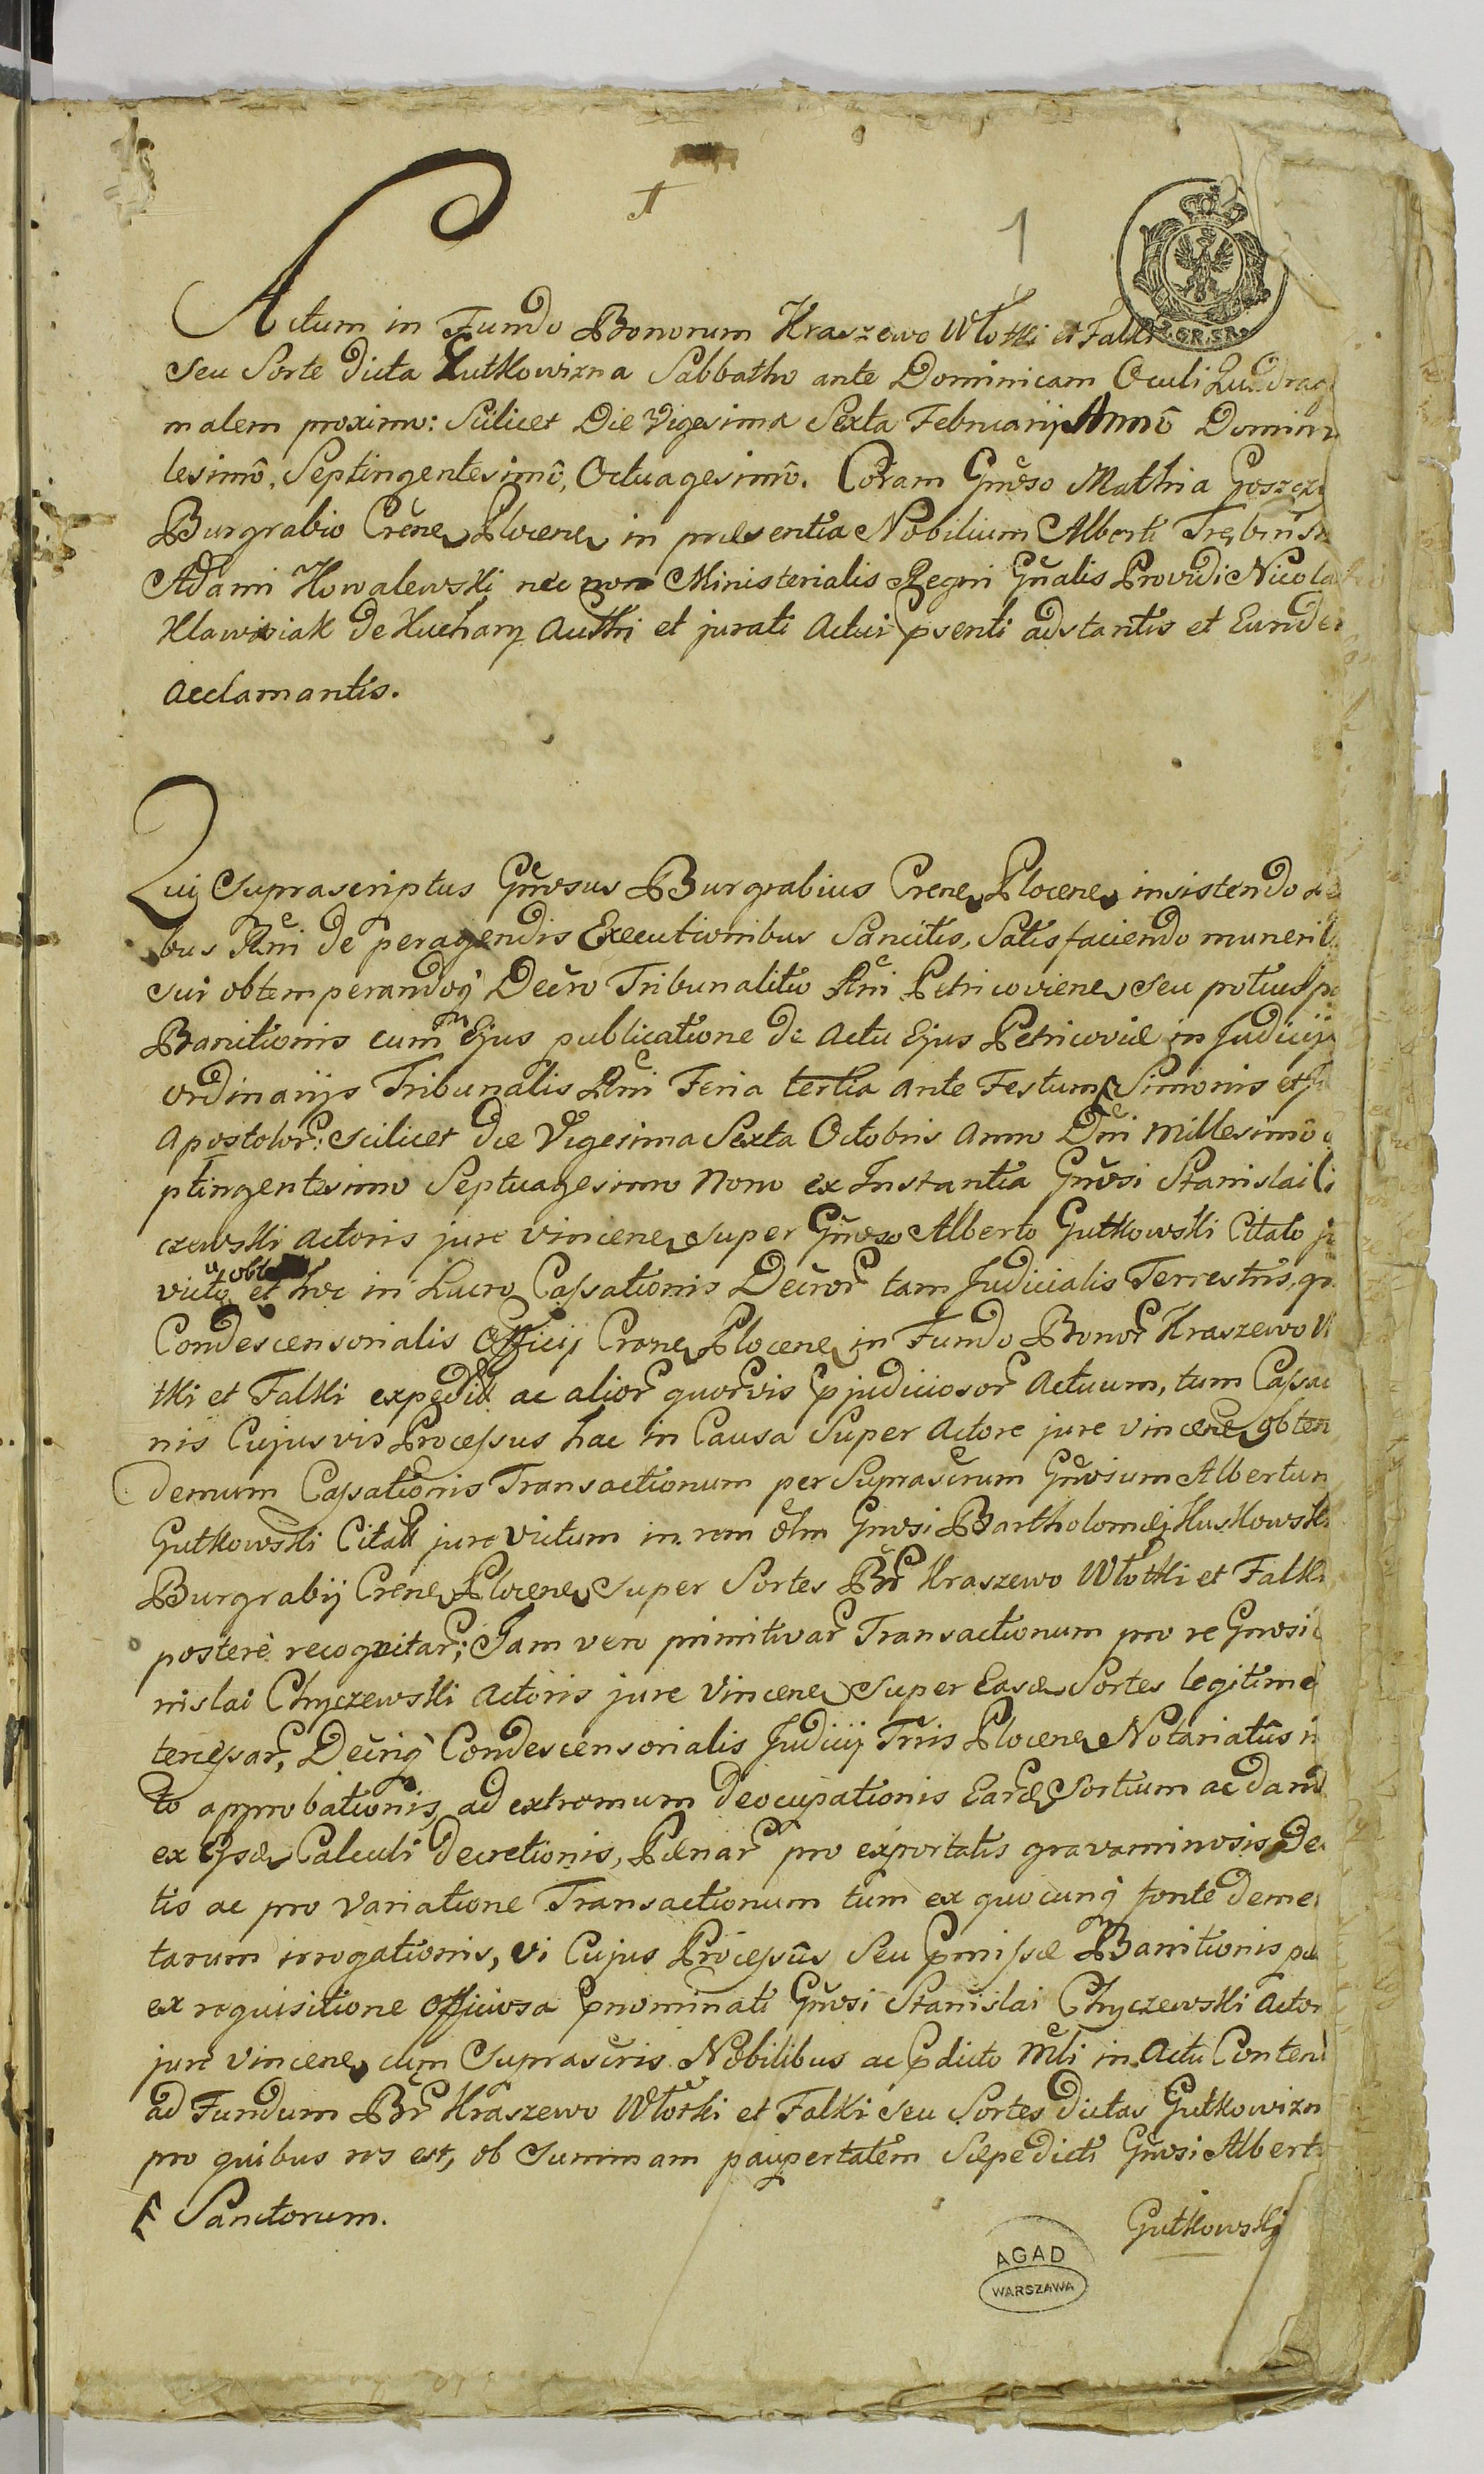 1
Z.GR.SR.
Actum in Fundo Bonorum Kraszewo Włotki et Falki
seu Sorte dicta Gutkowizna Sabbatho ante Dominicam Oculi Quadrag
malem proximo: Scilicet Die Vigesima Sexta Februarij Annô Domini
lesimô, Septingentesimô, Octuagesimô. Coram Gñroso Mathia
Burgrabio Crêne, Plocene, in præsentia Nobilium Alberti
Adami Kowalewski nec non Ministerialis Regni Gñalis Providi Nicolai
Klawisiak de Kuchary Authi et jurati Actui pñsenti adstantis et
acclamantis.
Qui Suprascriptus Gñrosus Burgrabius Crene, Plocene, insistendo
bus Rñi de peragendis Executionibus Sancitis, Satisfaciendo
sui obtemperandoq Decro Tribunalitio Rñi Petricoviene, seu potius
Banitionis cum Ejus publicatione de Actu Ejus Petricoviæ in
ordinarijs Tribunalis Rñi Feria tertia ante Festum Simonis et
Apostolor: scilicet die Vigesima Sexta Octobris Anno Dñi Millesimô
ptingentesimo Septuagesimo Nono ex Instantia Gñrosi Stanislai
czewski Actoris jure vincene, super Gñroso Alberto Gutkowski Citato
victo et hoc in Lucro Cassationis Decror tam Judicialis Terrestris,
Condescensorialis Officij Crane, Plocene, in Fundo Bonor Kraszewo
tki et Falki expedit ac alior quorvis pjudiciosor Actuum, tum
nis Cujusvis Processus hac in Causa Super Actore jure vincene,
demum Cassationis Transactionum per Suprascrum Gñrosum Albertum
Gutkowski Citat jure victum in rem olm Gñrosi Bartholomæj Kuskowski
Burgrabij Crene, Plocene, super Sortes Bñr Kraszewo Włotki et Falki
posterè recognitar; Jam vero primitivar Transactionum pro re Gñrosi
nislai Chyczewski Actoris jure Vincene, Super Easd, Sortes legitime
tercessar, Decriq Condescensorialis Judicij Trris Plocene, Notariatûs
to approbationis, ad extremum deocupationis Eard, Sortium ac
ex Ijsd, Calculi decretionis, Pænar pro exportatis gravaminosis
tis ac pro variatione Transactionum tum ex quocunq fonte
tarum irrogationis, vi Cujus Processûs Seu pmissæ Banitionis
ex requisitione officiosa pnominati Gñrosi Stanislai Chyczewski Actor
jure vincene, cum Suprascris Nobilibus ac pdicto Mli in Actu
ad Fundum Bñr Kraszewo Włotki et Falki seu Sortes dictas Gutkowizn
pro quibus nos est, ob Summam paupertatem Sæpedicti Gñrosi Alberti
Sanctorum.
Gutkowski
AGAD
WARSZAWA